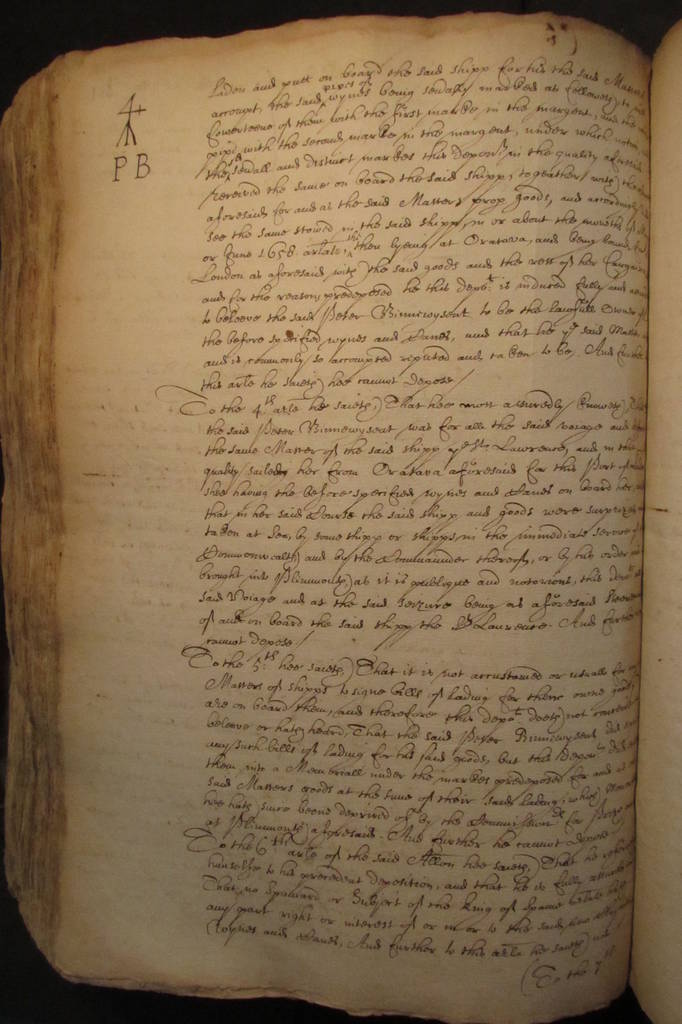 P B
Laden and putt on board the said shipp for his the said Masters
accompt, the said pipes of wynes being sevally marked as followeth, to
fowerteene of them with the first marke in the margent, and the
pipes with the second marke in the margent, under which
the sd sevall and distinct markes this deponent in the quality aforesaid
received the same on board the said shipp, together with the
aforesaid for and as the said Masters prop goods, and accordingly
see the same stowed in the said shipp, in or about the moneths of
or June 1658 arlate, shee then lyeing at Oratava, and being bound for
London as aforesaid with the said goods and the rest of her
and for the reasons predeposed hee this depot is induced fully and
to beleeve the said Peter Binnewyseat to be the lawfull Owner of
the before specified wynes and Canes, and that he ye said Master
and is commonly so accompted reputed and taken to be, And further
this arle he saieth hee cannot depose /
To the 4th arle he saieth, That hee most assuredly knoweth, that
the said Peter Binnewyseat was for all the said voiage and
the same Master of the said shipp ye St Lawrence, and in that
quality sailed her from Oratava aforesaid for this Port of
shee having the before specified wynes and Canes on board her,
that in her said Course the said shipp and goods were surprized
taken at Sea, by some shipp or shipps in the immediate service of
Commonwealth and by the Commaunder thereof, or by his order
brought into Plimmouth, as it is publique and notorious, this depot
said Voiage and at the said seizure being as aforesaid Steersman
of and on board the said shipp the St Laurence. And further
cannot depose /
To the 5th hee saieth, That it is not accustomed or usuall for
Masters of shipps to signe bills of lading for there owne goods
are on board them, and therefore this depot doeth not
beleeve or hath heard, That the said Peter Binnewyseat did
any such bills of lading for his said goods, but this Deponent did
them into a Memoriall under the markes predeposed for and as
said Masters goods at the time of their said lading, which
hee hath since beene deprived of by the Commissioners for Prizes
at Plimmouth aforesaid. And further he cannot depose
To the 6th arle of the said Allon hee saieth, That he referreth
himselfe to his precedent deposition, and that he is fully assured
That no Spaniard or Subject of the King of Spaine hath
any part right or interest of or in or to the said
wynes and Canes, And further to this arle he saieth
(To the 7th